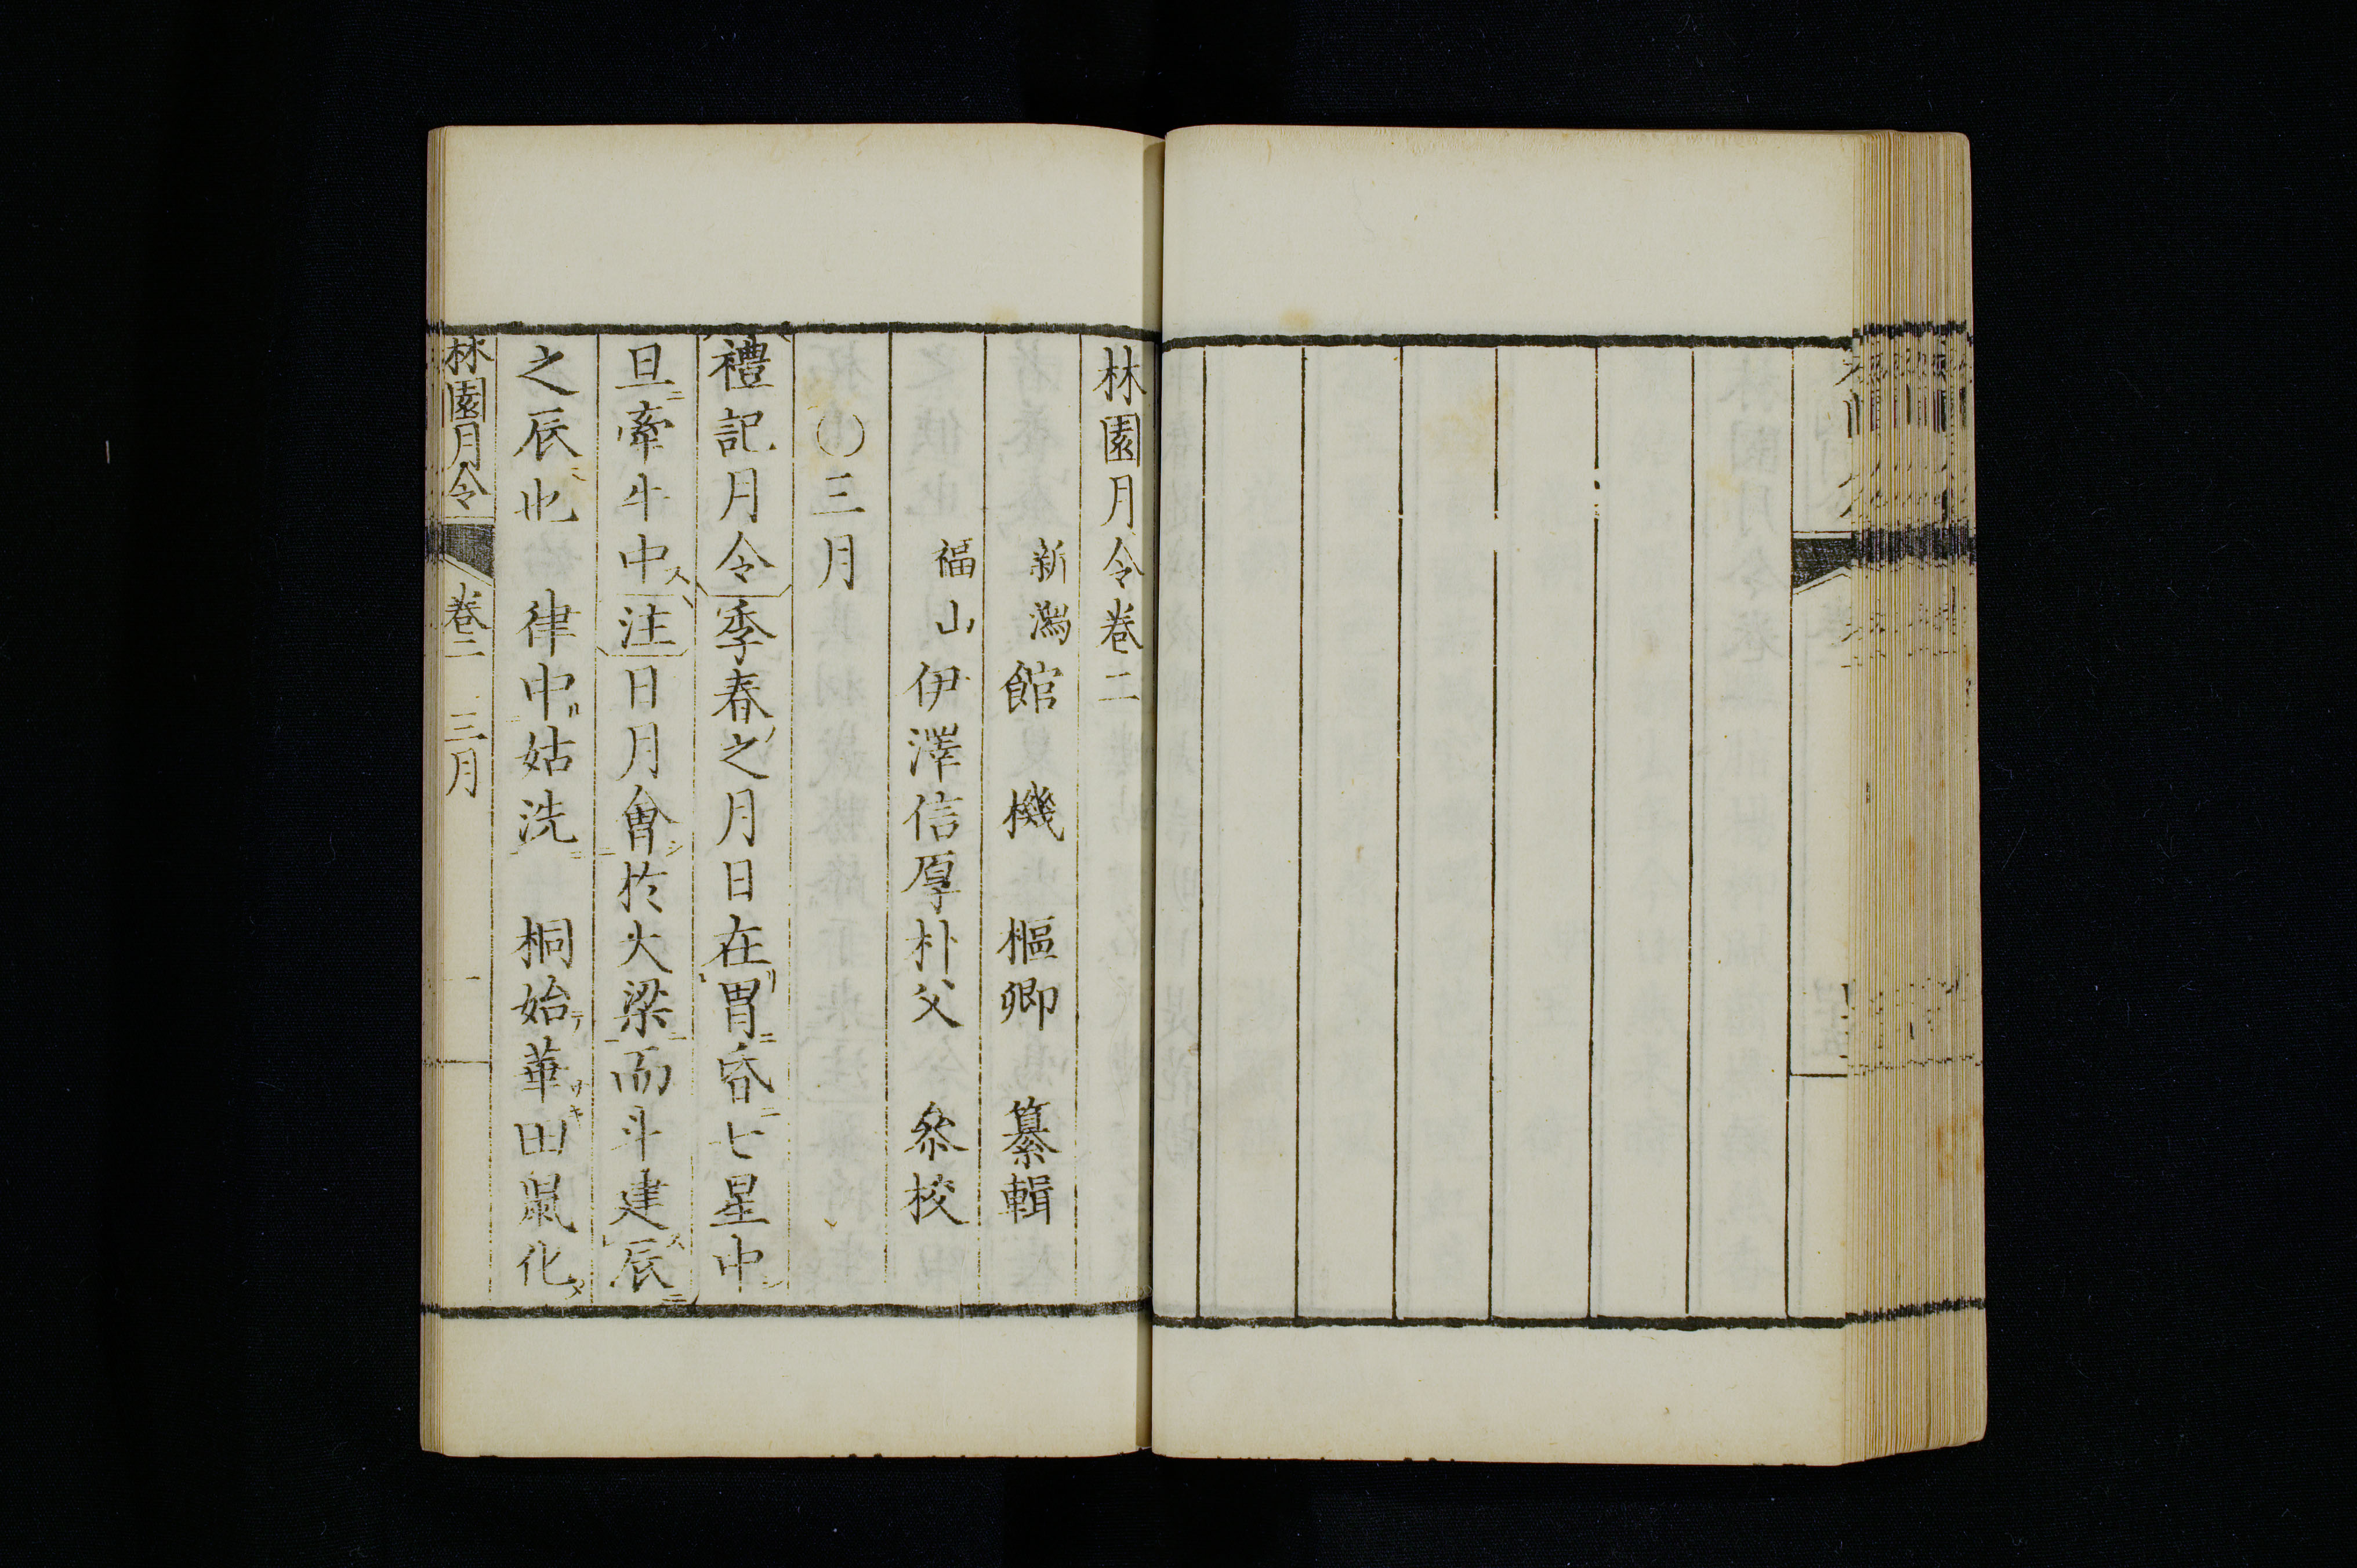 林園月令卷二
新潟館機樞卿纂輯
福山伊澤信厚朴父叅校
〇三月
禮記月令季春之月日在胃昏七星中
旦牽牛中注日月會於大梁而斗建辰
之辰也 律中姑洗 桐始華田鼠化
林園月令 卷二 三月 一